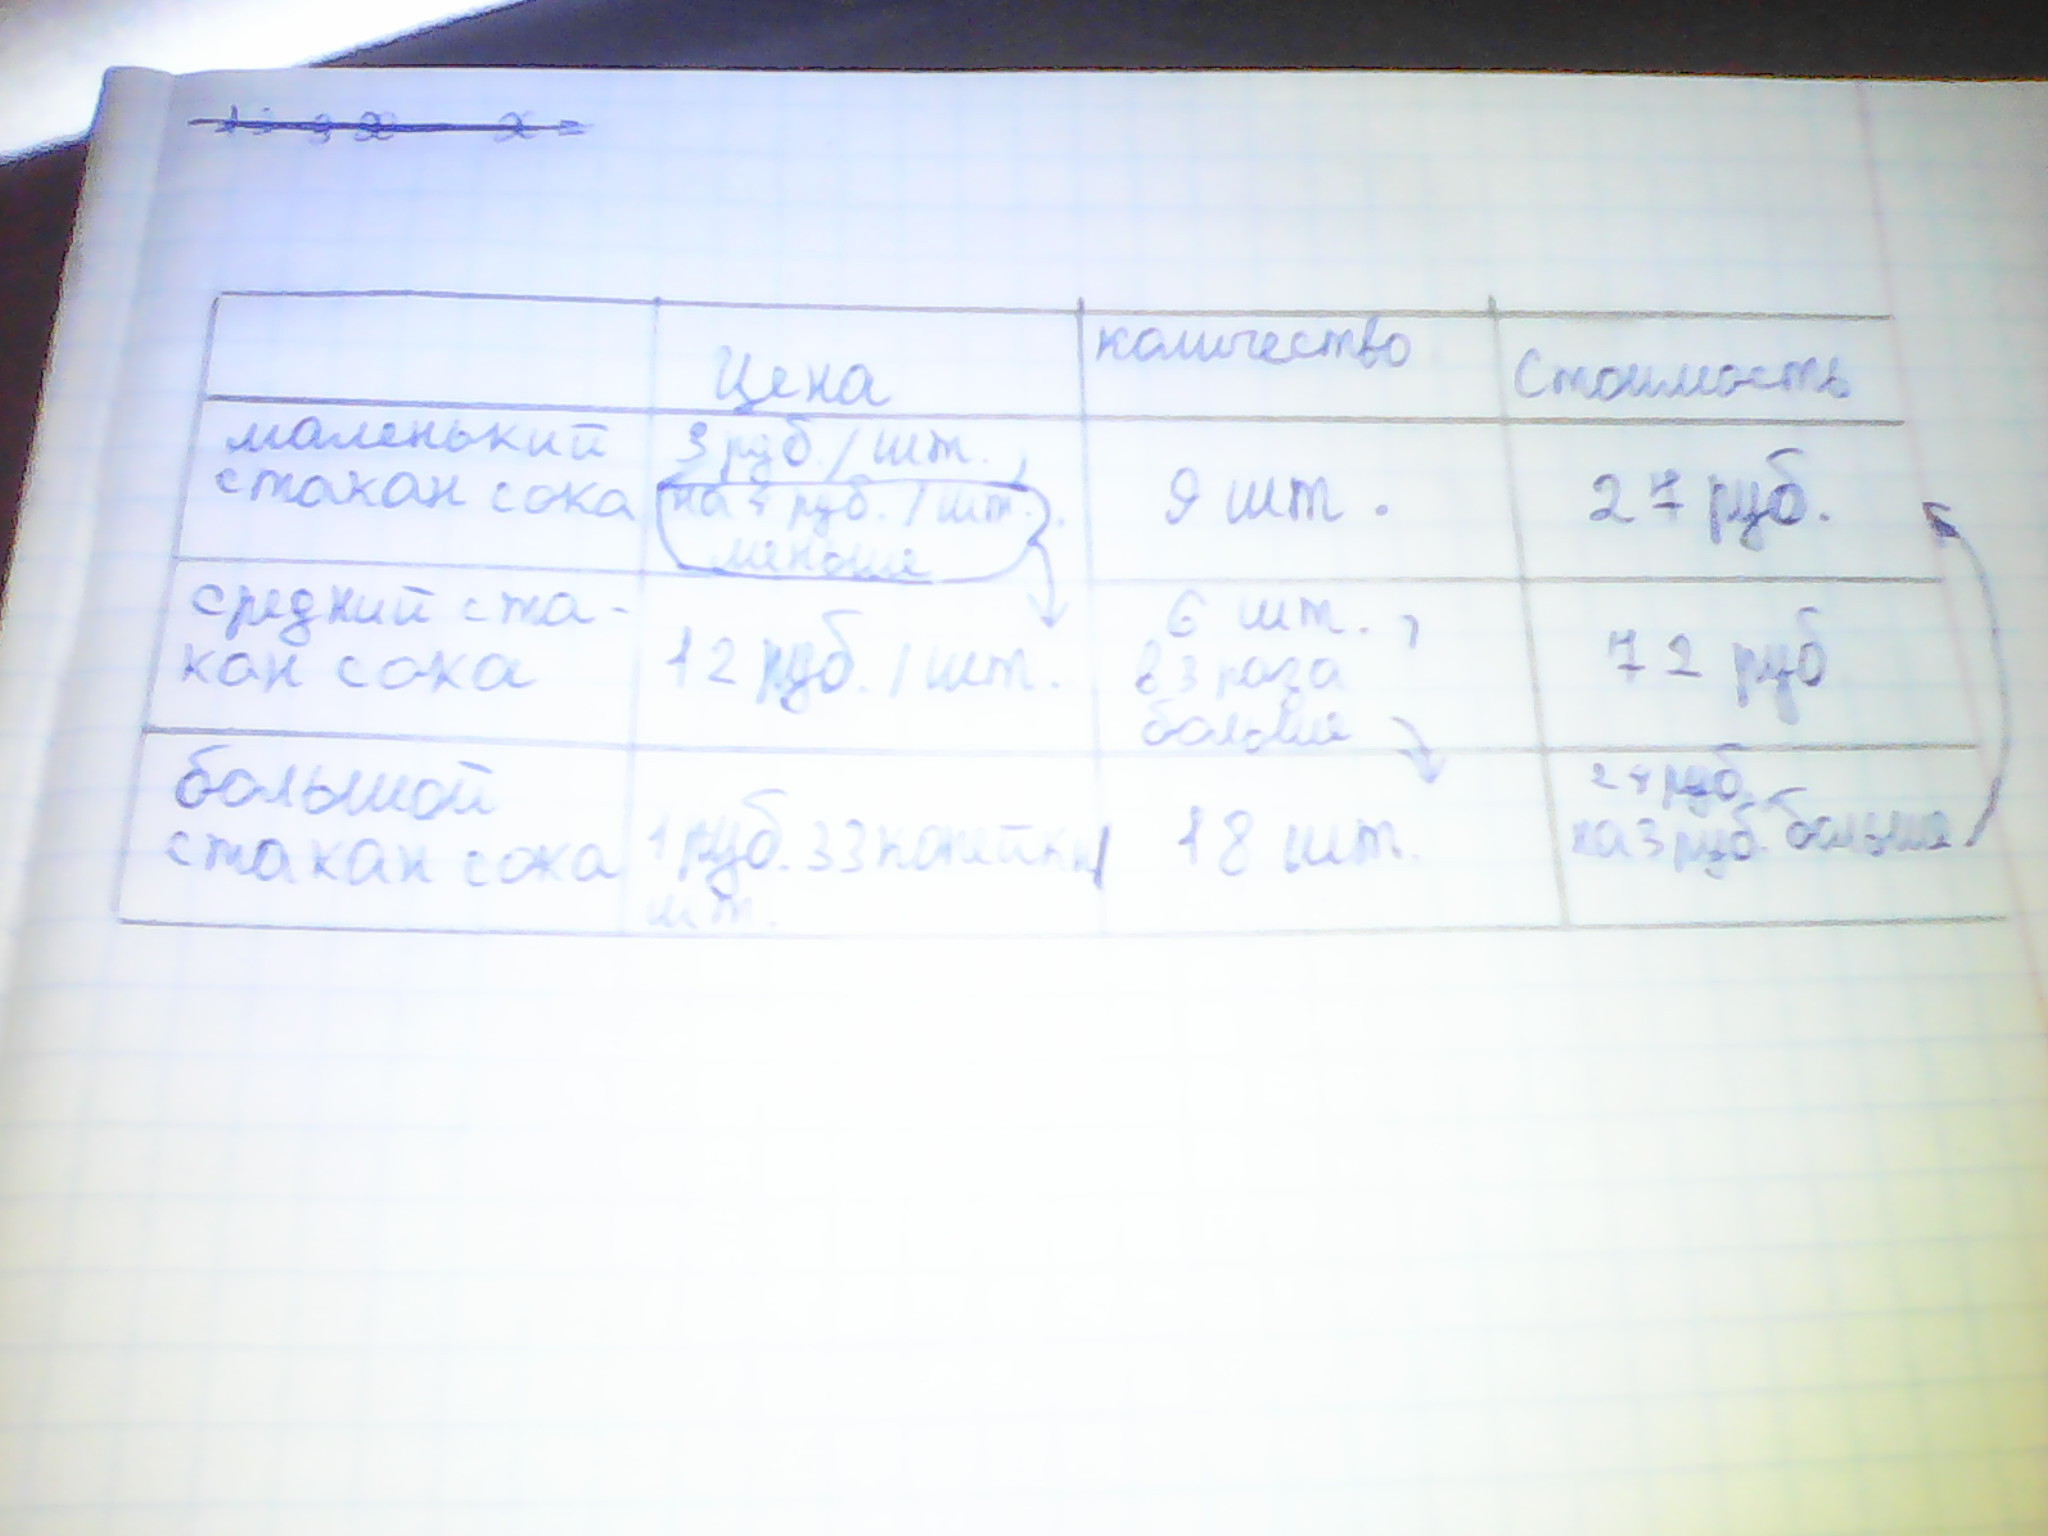 Цена
количество
Стоимость
маленький
стакан сока
3 руб./шт.,
на руб./шт.
меньше
9 шт.
27 руб.
средний ста-
кан сока
12 руб./шт.
6 шт.,
в 3 раза
больше
72 руб
большой
стакан сока
1 руб. 33 копейки/
шт.
18 шт.
24 руб.
на 3 руб. больше